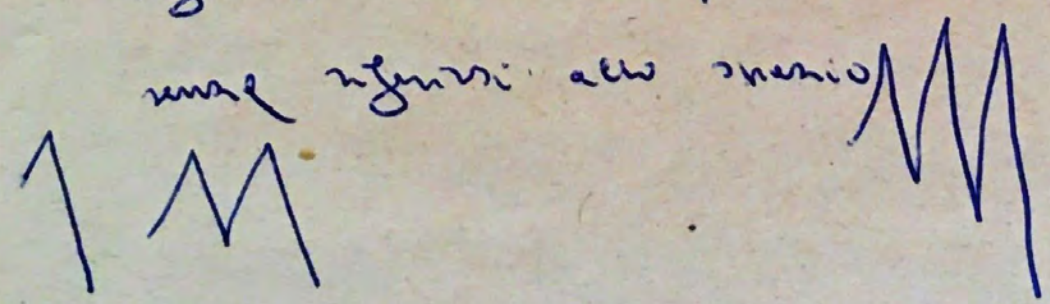 senza riferirsi allo spazio